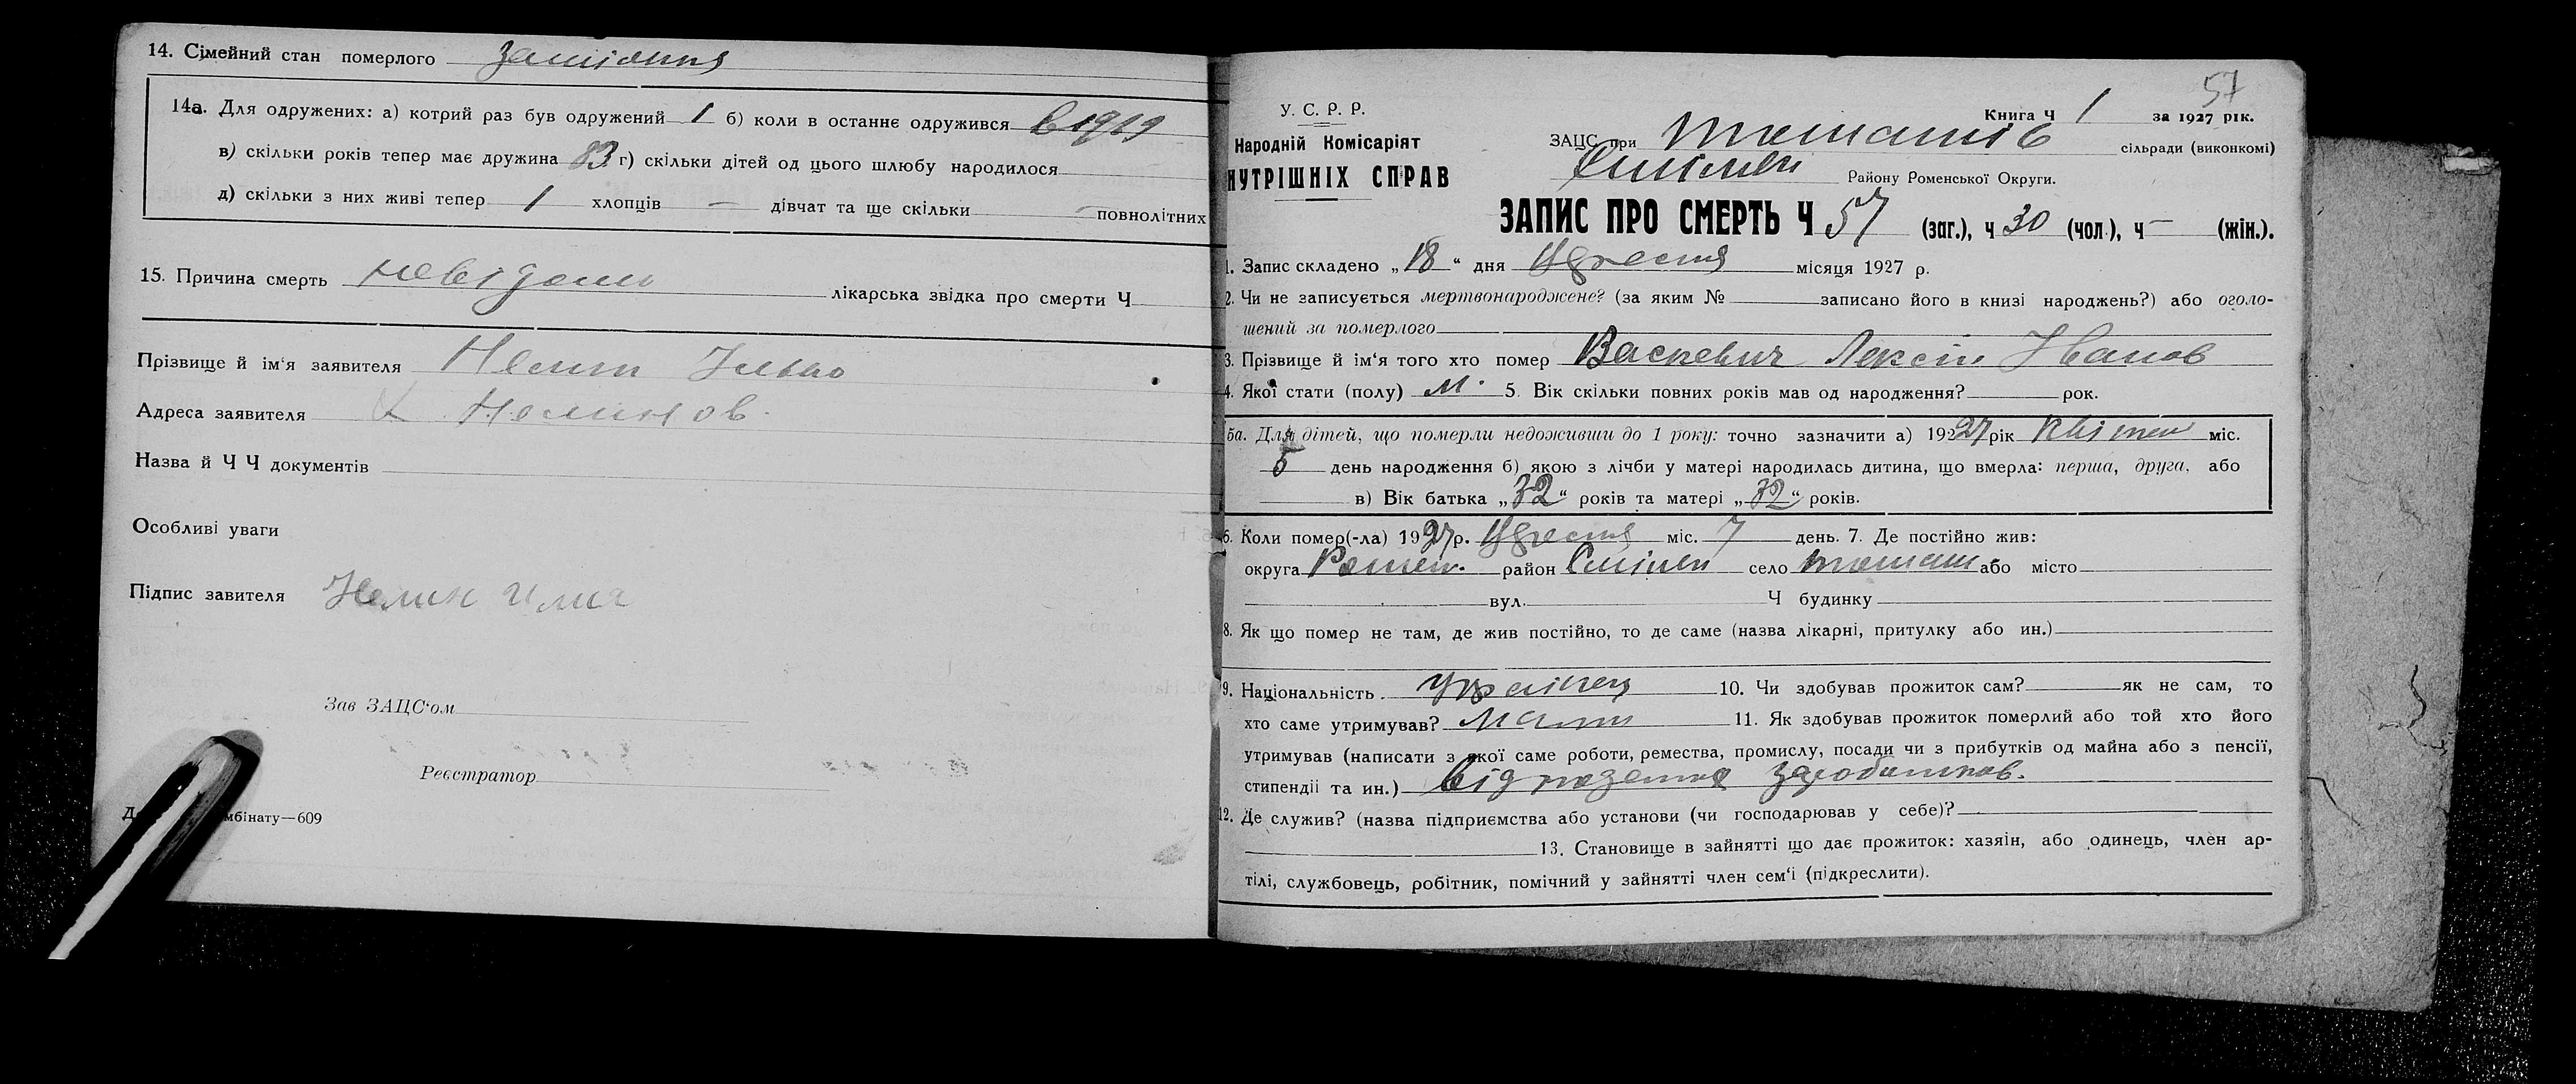 14. Сімейний стан померлого
14а. Для одружених: а) котрий раз був одружений 1 б) коли в останнє одружився в 1919
в) скільки років тепер має дружина 83 г) скільки дітей од цього шлюбу народилося
д) скільки з них живі тепер 1 хлопців — дівчат та ще скільки — повнолітних
15. Причина смерть невідома лікарська звідка про смерти Ч
Прізвище й ім'я заявителя Нелин Илько
Адреса заявителя х. Нелинов.
Назва й Ч Ч документів
Особливі уваги
Підпис завителя Нелин Илия
Зав ЗАЦС'ом
Реєстратор
мбінату—609
57
У. С. Р. Р.
Книга Ч 1 за 1927 рік.
Народній Комісаріят
ЗАЦС при сільради (виконкомі)
НУТРІШНІХ СПРАВ
Району Роменської Округи.
ЗАПИС ПРО СМЕРТЬ Ч 57 (заг.), ч 30 (чол.), ч — (жін.).
1. Запис складено „18“ дня місяця 1927 р.
2. Чи не записується мертвонароджене? (за яким № записано його в книзі народжень?) або оголо-
шений за померлого
3. Прізвище й ім'я того хто помер Васкевич Лексій Иванов
4. Якої стати (полу) м. 5. Вік скільки повних років мав од народження? рок.
5а. Для дітей, що померли недоживши до 1 року: точно зазначити а) 1927 рік Квітень міс.
5 день народження б) якою з лічби у матері народилась дитина, що вмерла: перша, друга, або
в) Вік батька „32“ років та матері „32“ років.
6. Коли помер(-ла) 1927р. міс. 7 день. 7. Де постійно жив:
округа Ромен. район Смілен село або місто
вул. Ч будинку
8. Як що помер не там, де жив постійно, то де саме (назва лікарні, притулку або ин.)
9. Національність Українец 10. Чи здобував прожиток сам? як не сам, то
хто саме утримував? 11. Як здобував прожиток померлий або той хто його
утримував (написати з якої саме роботи, ремества, промислу, посади чи з прибутків од майна або з пенсії,
стипендії та ин.) від заробитков.
12. Де служив? (назва підприємства або установи (чи господарював у себе)?
13. Становище в зайнятті що дає прожиток: хазяїн, або одинець, член ар-
тілі, службовець, робітник, помічний у зайнятті член сем'ї (підкреслити).